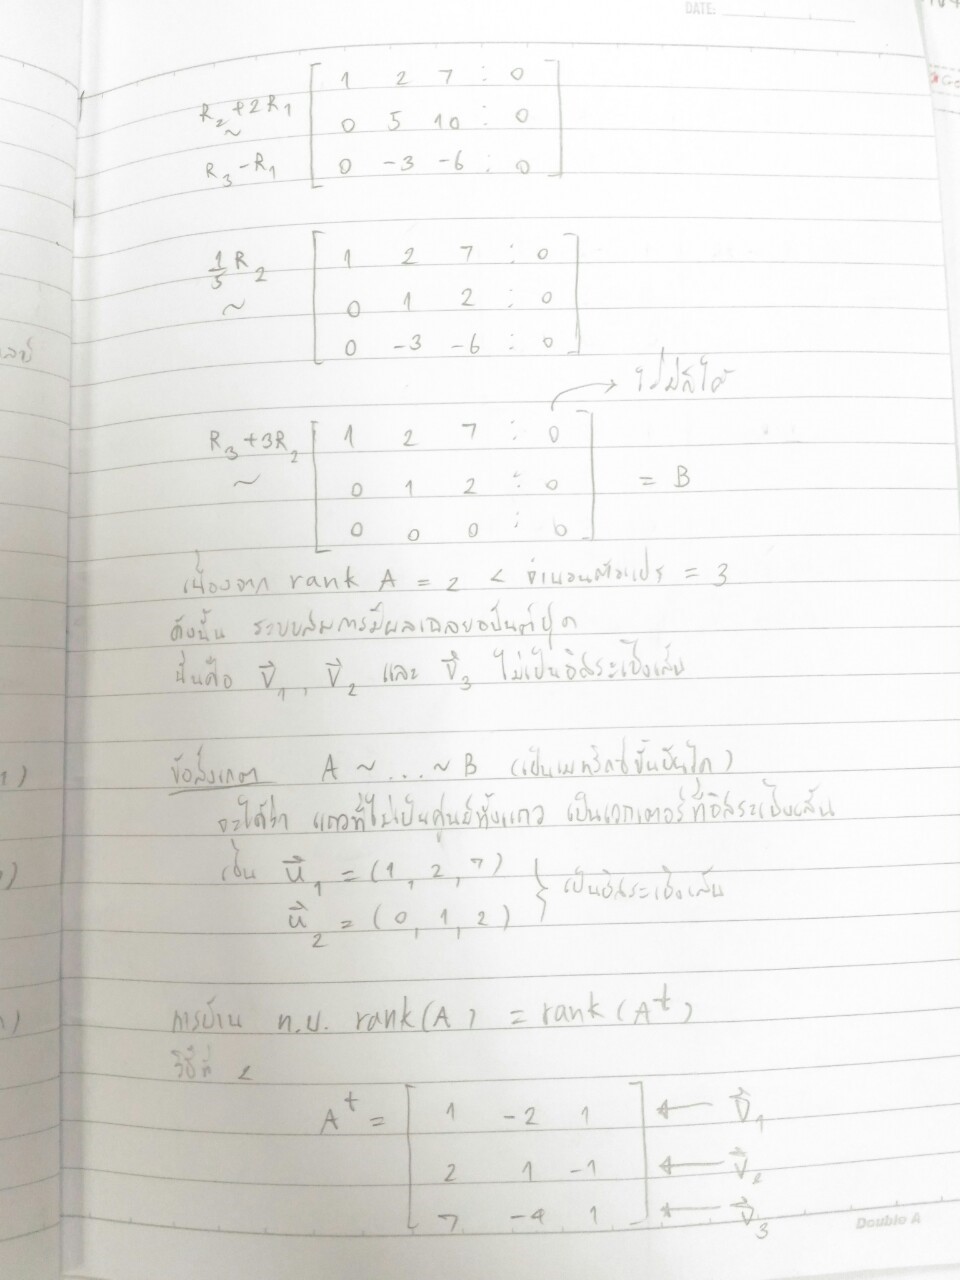 DATE:
R₂+2R₁ ~ R₃-R₁ [ 1 2 7 : 0
0 5 10 : 0
0 -3 -6 : 0 ]
1/5 R₂ ~ [ 1 2 7 : 0
0 1 2 : 0
0 -3 -6 : 0 ]
ไม่มีก็ได้
R₃+3R₂ ~ [ 1 2 7 : 0
0 1 2 : 0
0 0 0 : 0 ] = B
เนื่องจาก rank A = 2 < จำนวนตัวแปร = 3
ดังนั้น ระบบสมการมีผลเฉลยอนันต์ชุด
นั่นคือ v⃗₁, v⃗₂ และ v⃗₃ ไม่เป็นอิสระเชิงเส้น
ข้อสังเกต A ~ ... ~ B (เป็นเมทริกซ์ขั้นบันได)
จะได้ว่า แถวที่ไม่เป็นศูนย์ทั้งแถว เป็นเวกเตอร์ที่อิสระเชิงเส้น
เช่น u⃗₁ = (1, 2, 7)
u⃗₂ = (0, 1, 2) } เป็นอิสระเชิงเส้น
การบ้าน ท.บ. rank(A) = rank(Aᵗ)
วิธีที่ 2
Aᵗ = [ 1 -2 1 ← v⃗₁
2 1 -1 ← v⃗₂
7 -4 1 ] ← v⃗₃
Double A